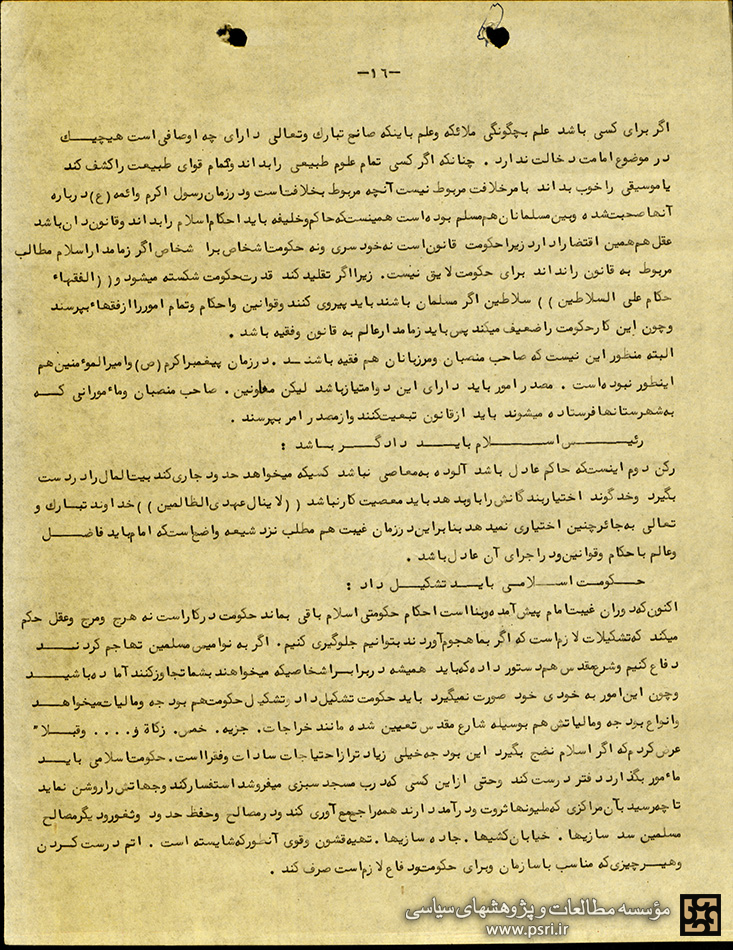 -١٦-
اگر برای کسی باشد علم بچگونگی ملائکه وعلم باینکه صانع تبارك وتعالی دارای چه اوصافی است هیچیـــك
در موضوع امامت دخالت ندارد . چنانکه اگر کسی تمام علوم طبیعی رابداند وتمام قوای طبیعت راکشف کند
یاموسیقی راخوب بداند بامرخلافت مربوط نیست آنچه مربوط بخلافتاست ودرزمان رسول اکرم وائمه (ع) درباره
آنها صحبت شده وبین مسلمانان هم مسلم بوده است همینست که حاکم وخلیفه باید احکام اسلام رابداند وقانون دان باشد
عقل هم همین اقتضا رادارد زیراحکومت قانون است نه خودسری ونه حکومت اشخاص برا شخاص اگر زمامدار اسلام مطالب
مربوط به قانون راندا ند برای حکومت لایق نیست. زیرا اگر تقلید کند قدرت حکومت شکسته میشود و ((الفقهاء
حکام علی السلاطین )) سلاطین اگر مسلمان باشند باید پیروی کنند وقوانین واحکام وتمام اموررا ازفقهاء بپرسند
وچون این کار حکومت راضعیف میکند پس باید زمامدار عالم به قانون وفقیه باشد .
البته منظور این نیست که صاحب منصبان ومرزبانان هم فقیه باشنـــد . درزمان پیغمبر اکرم (ص) وامیرالموءمنین هم
اینطور نبوده است . مصدر امور باید دارای این دوامتیاز باشد لیکن معاونین. صاحب منصبان وماءمورانی کـــه
به شهرستانها فرستاده میشوند باید ازقانون تبعیت کنند وازمصدر امر بپرسند .
رئیـــس اســـلام بایـــد دادگـــر بـاشد :
رکن دوم اینستکه حاکم عادل باشد آلوده به معاصی نباشد کسیکه میخواهد حدود جاری کند بیت المال رادردست
بگیرد وخدگوند اختیاربندگانش را باوبدهد باید معصیت کارنباشد ((لاینال عهدی الظالمین )) خداوند تبـارك و
تعالی به جائر چنین اختیاری نمیدهد بنابراین درزمان غیبت هم مطلب نزد شیعه واضح است که امام باید فاضــل
وعالم باحکام وقوانین ودر اجرای آن عادل باشد .
حـــکومت اســـلامی بایـــد تشکیـــل داد :
اکنون که دوران غیبت امام پیش آمده وبنا است احکام حکومتی اسلام باقی بماند حکومت درکاراست نه هرج ومرج وعقل حکم
میکند که تشکیلات لازم است که اگر بما هجوم آوردند بتوانیم جلوگیری کنیم . اگر به نوامیس مسلمین تهاجم کردنـــد
دفاع کنیم وشرع مقدس هم دستور داده که باید همیشه دربرابر اشخاصیکه میخواهند بشما تجاوزکنند آماده باشیـــد
وچون این امور به خودی خود صورت نمیگیرد باید حکومت تشکیل داد وتشکیل حکومت هم بودجه ومالیات میخواهـــد
وانواع بودجه ومالیاتش هم بوسیله شارع مقدس تعیین شده مانند خراجات. جزیه. خمس. زکاة و.... وقبــلاً
عرض کردم که اگر اسلام نضج بگیرد این بودجه خیلی زیادترازاحتیاجات سادات وفقرااست. حکومت اسلامی بایـــد
ماءمور بگذارد دفتر درست کند وحتی ازاین کسی که درب مسجد سبزی میفروشد استفسارکند وجهاتش راروشن نماید
تا چه رسید بآن مراکزی که ملیونها ثروت ودرآمد دارند همه راجمع آوری کند ودرمصالح وحفظ حدود وثغورودیگرمصالح
مسلمین سد سازیها . خیابان کشیها. جاده سازیها. تهیه قشون وقوی آنطورکه شایسته است . اتم درست کــردن
وهـــرچیزی که مناسب باسازمان وبرای حکومت ودفاع لازم است صرف کند .
مؤسسه مطالعات و پژوهشهای سیاسی
www.psri.ir